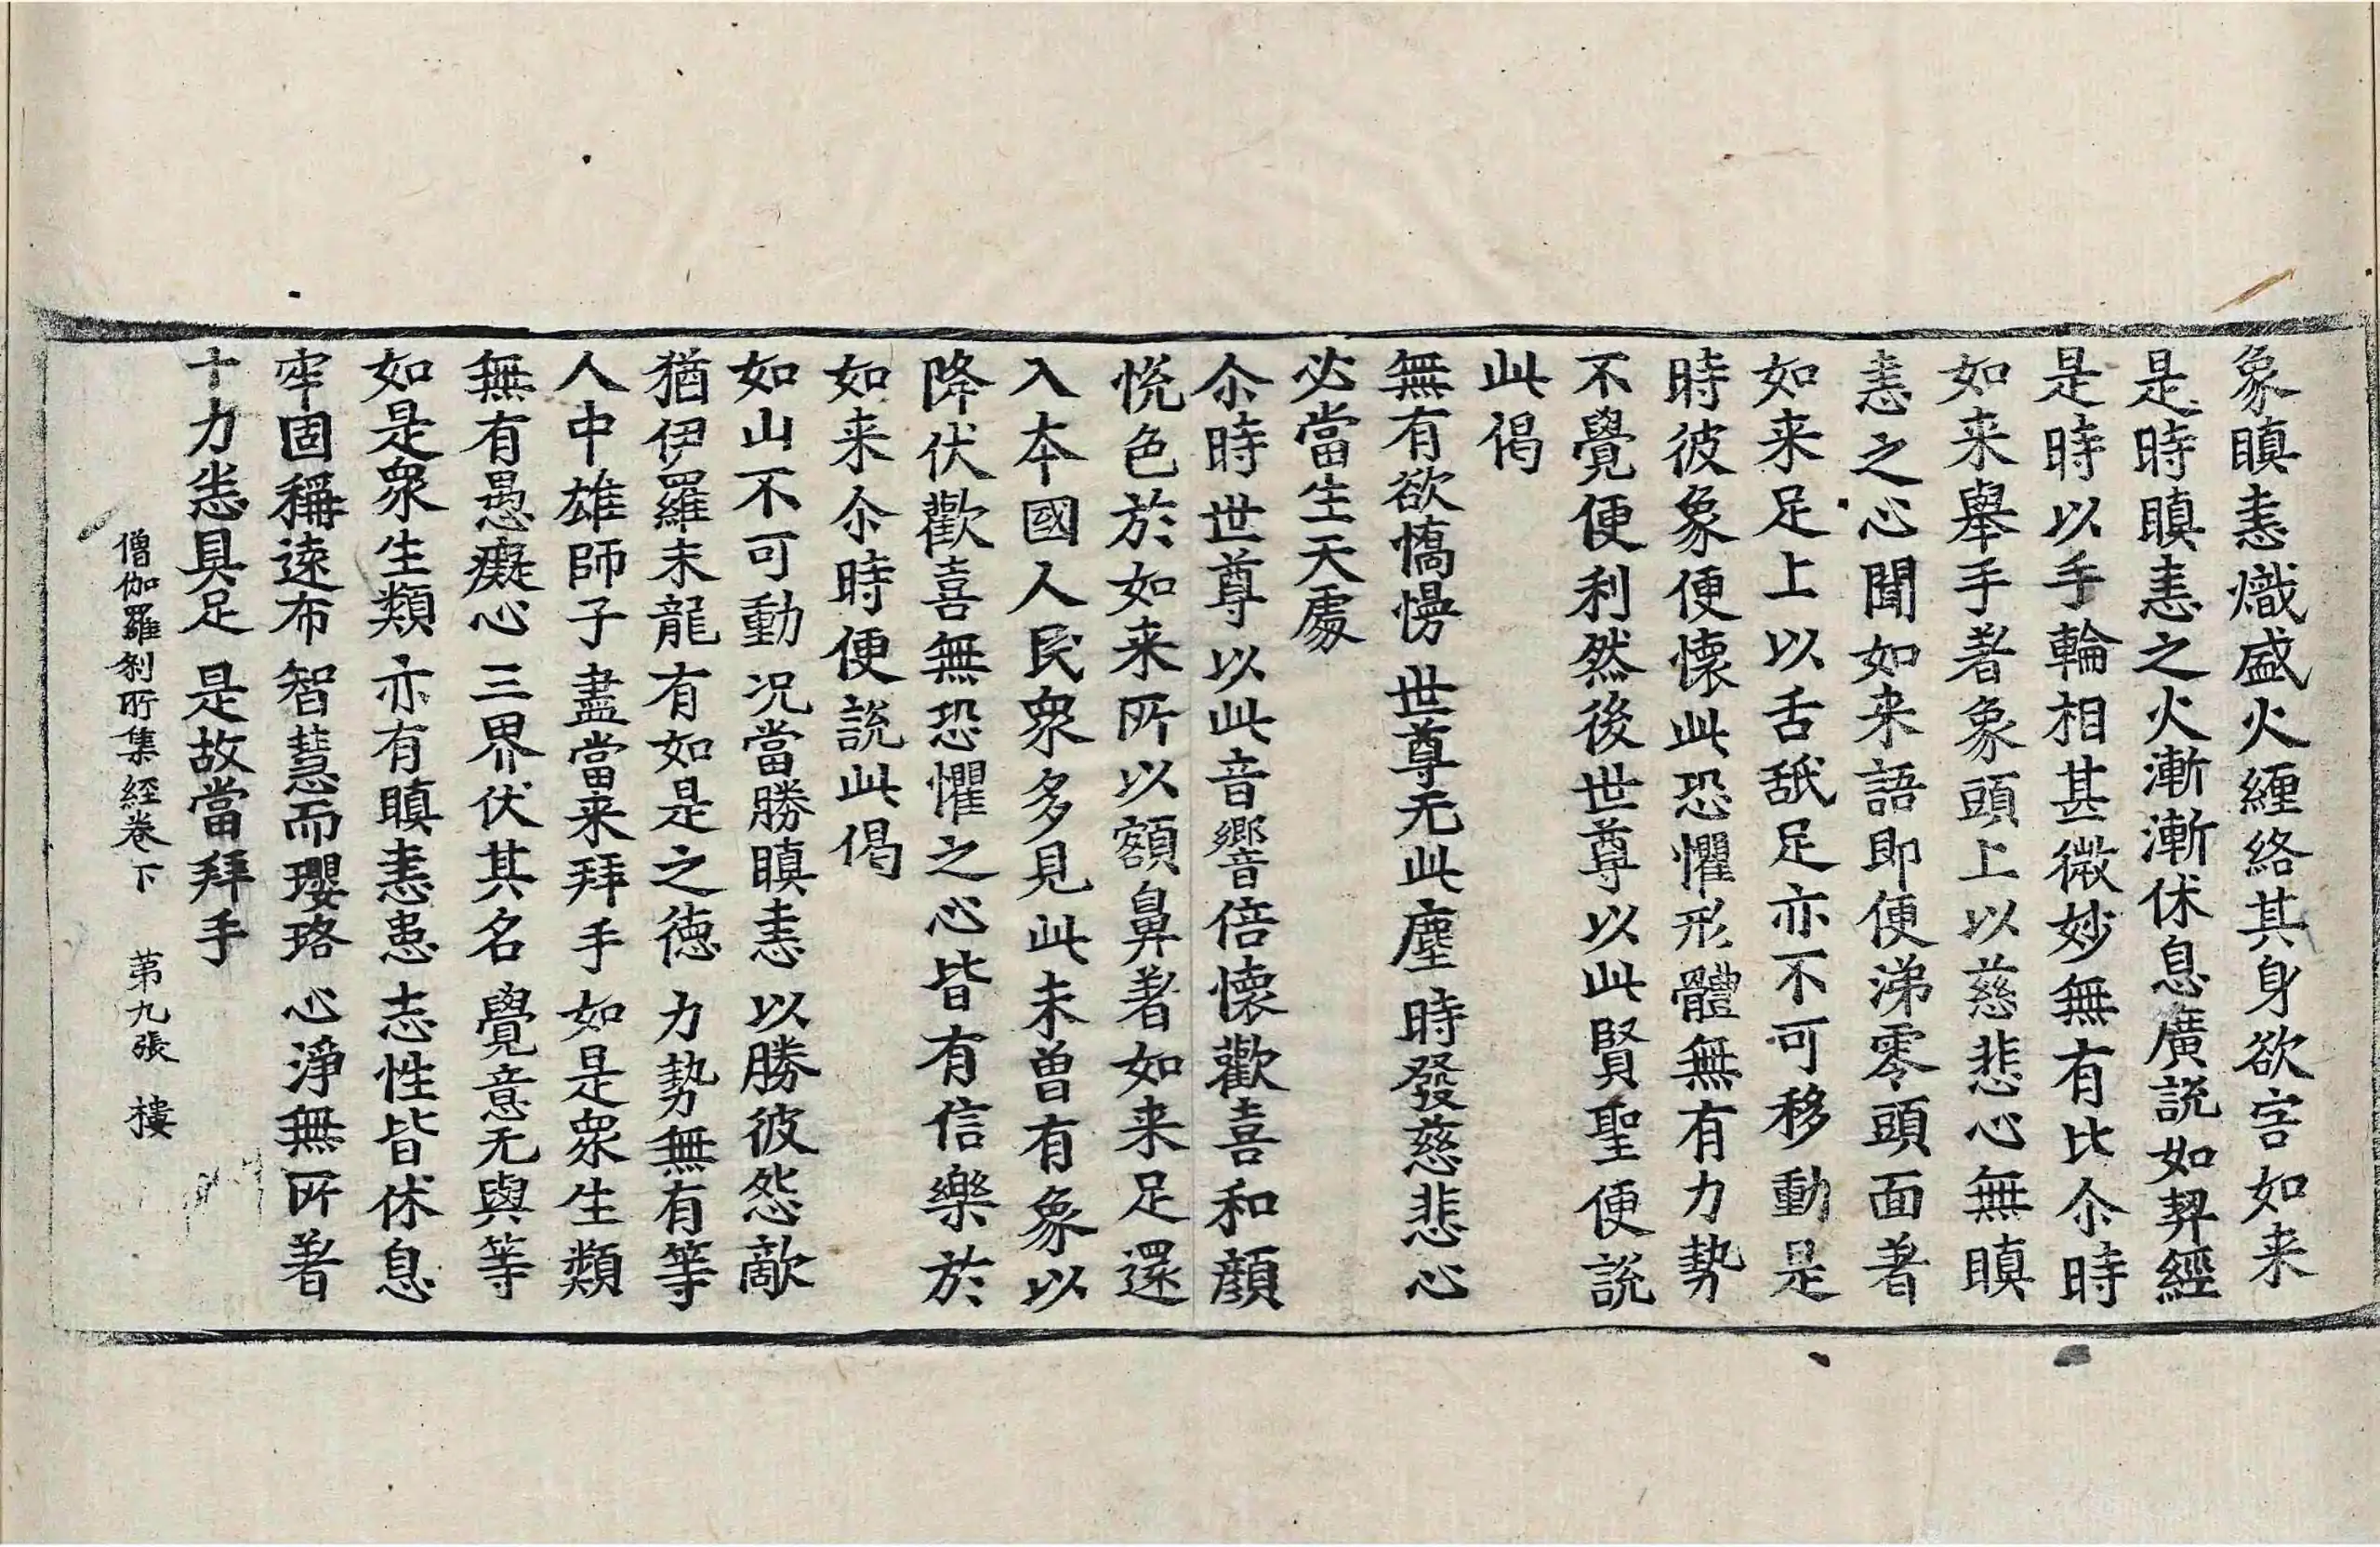 象瞋恚熾盛火纏絡其身欲害如来
是時瞋恚之火漸漸休息廣說如契經
是時以手輪相甚微妙無有比尒時
如来舉手著象頭上以慈悲心無瞋
恚之心聞如来語即便涕零頭面著
如来足上以舌舐足亦不可移動是
時彼象便懷此恐懼形體無有力勢
不覺便利然後世尊以此賢聖便說
此偈
無有欲憍慢 世尊无此塵 時發慈悲心
必當生天處
尒時世尊以此音響倍懷歡喜和顏
悅色於如来所以額鼻著如来足還
入本國人民衆多見此未曾有象以
降伏歡喜無恐懼之心皆有信樂於
如来尒時便說此偈
如山不可動 况當勝瞋恚 以勝彼怨敵
猶伊羅末龍 有如是之德 力勢無有等
人中雄師子 盡當来拜手 如是衆生類
無有愚癡心 三界伏其名 覺意无與等
如是衆生類 亦有瞋恚患 志性皆休息
牢固稱遠布 智慧而瓔珞 心淨無所著
十力悉具足 是故當拜手
僧伽羅剎所集經卷下 第九張 樓